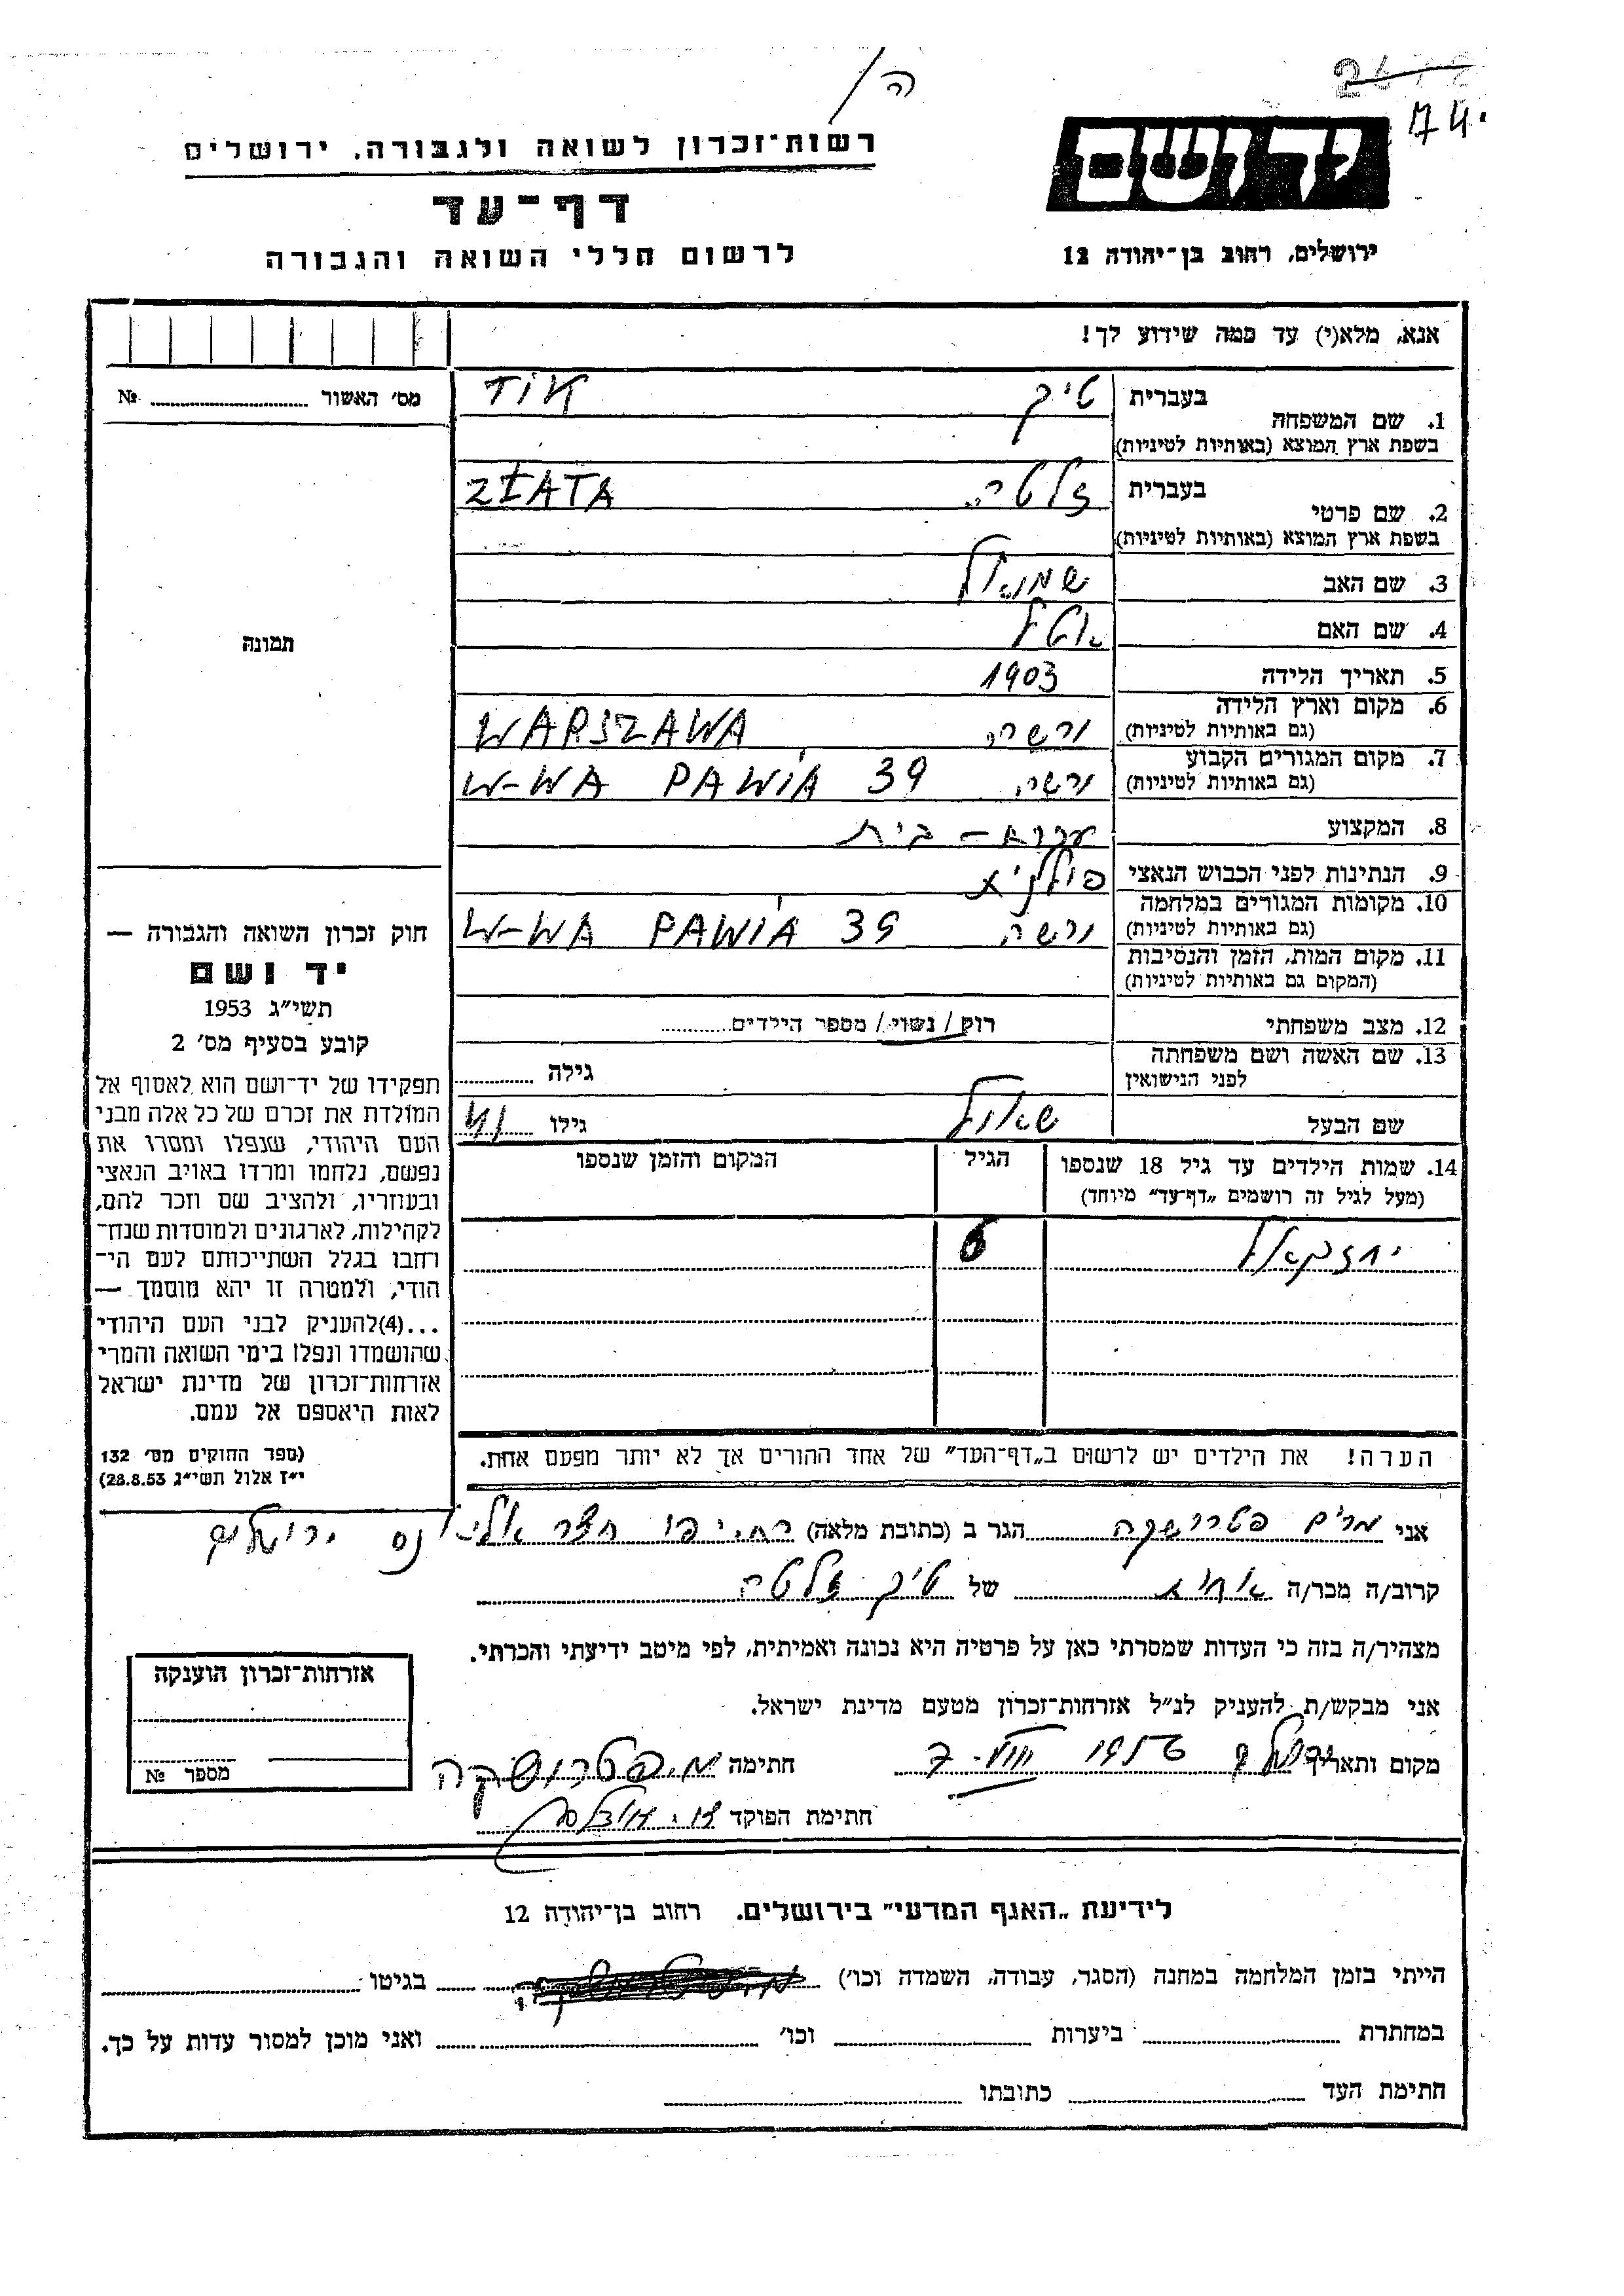 ה/
74.
רשות־זכרון לשואה ולגבורה, ירושלים
דף־עד
לרשום חללי השואה והגבורה
יד ושם
ירושלים, רחוב בן־יהודה 12
אנא, מלא(י) עד כמה שידוע לך!
מס׳ האשור № 
1. שם המשפחה בעברית טיק
בשפת ארץ המוצא (באותיות לטיניות)
2. שם פרטי בעברית זלטה ZŁATA
בשפת ארץ המוצא (באותיות לטיניות)
3. שם האב שמואל
4. שם האם
תמונה
5. תאריך הלידה 1903
6. מקום וארץ הלידה (גם באותיות לטיניות) ורשה WARSZAWA
7. מקום המגורים הקבוע (גם באותיות לטיניות) ורשה W-WA PAWIA 39
8. המקצוע עקרת-בית
9. הנתינות לפני הכבוש הנאצי פולניא
10. מקומות המגורים במלחמה (גם באותיות לטיניות) ורשה W-WA PAWIA 39
11. מקום המות, הזמן והנסיבות (המקום גם באותיות לטיניות)
12. מצב משפחתי רוק / נשוי / מספר הילדים
13. שם האשה ושם משפחתה לפני הנישואין גילה
שם הבעל שאול גילו
14. שמות הילדים עד גיל 18 שנספו הגיל המקום והזמן שנספו
(מעל לגיל זה רושמים „דף־עד״ מיוחד)
יחזקאל 6
הערה! את הילדים יש לרשום ב„דף־העד״ של אחד ההורים אך לא יותר מפעם אחת.
חוק זכרון השואה והגבורה —
יד ושם
תשי״ג 1953
קובע בסעיף מס׳ 2
תפקידו של יד־ושם הוא לאסוף אל
המולדת את זכרם של כל אלה מבני
העם היהודי, שנפלו ומסרו את
נפשם, נלחמו ומרדו באויב הנאצי
ובעוזריו, ולהציב שם וזכר להם,
לקהילות, לארגונים ולמוסדות שנח־
רחבו בגלל השתייכותם לעם הי־
הודי, ולמטרה זו יהא מוסמך —
...(4)להעניק לבני העם היהודי
שהושמדו ונפלו בימי השואה והמרי
אזרחות־זכרון של מדינת ישראל
לאות היאספם אל עמם.
(ספר החוקים מס׳ 132
י״ז אלול תשי״ג 28.8.53)
אני מרים פטרושקה הגר ב (כתובת מלאה) רח. יפו חצר ירושלים
קרוב/ה מכר/ה של טיק זלטה
מצהיר/ה בזה כי העדות שמסרתי כאן על פרטיה היא נכונה ואמיתית, לפי מיטב ידיעתי והכרתי.
אני מבקש/ת להעניק לנ״ל אזרחות־זכרון מטעם מדינת ישראל.
מקום ותאריך ירושלים חתימה מ. פטרושקה
חתימת הפוקד
אזרחות־זכרון הוענקה
מספר №
לידיעת „האגף המדעי״ בירושלים. רחוב בן־יהודה 12
הייתי בזמן המלחמה במחנה (הסגר, עבודה, השמדה וכו׳) בגיטו
במחתרת ביערות וכו׳ ואני מוכן למסור עדות על כך.
חתימת העד כתובתו